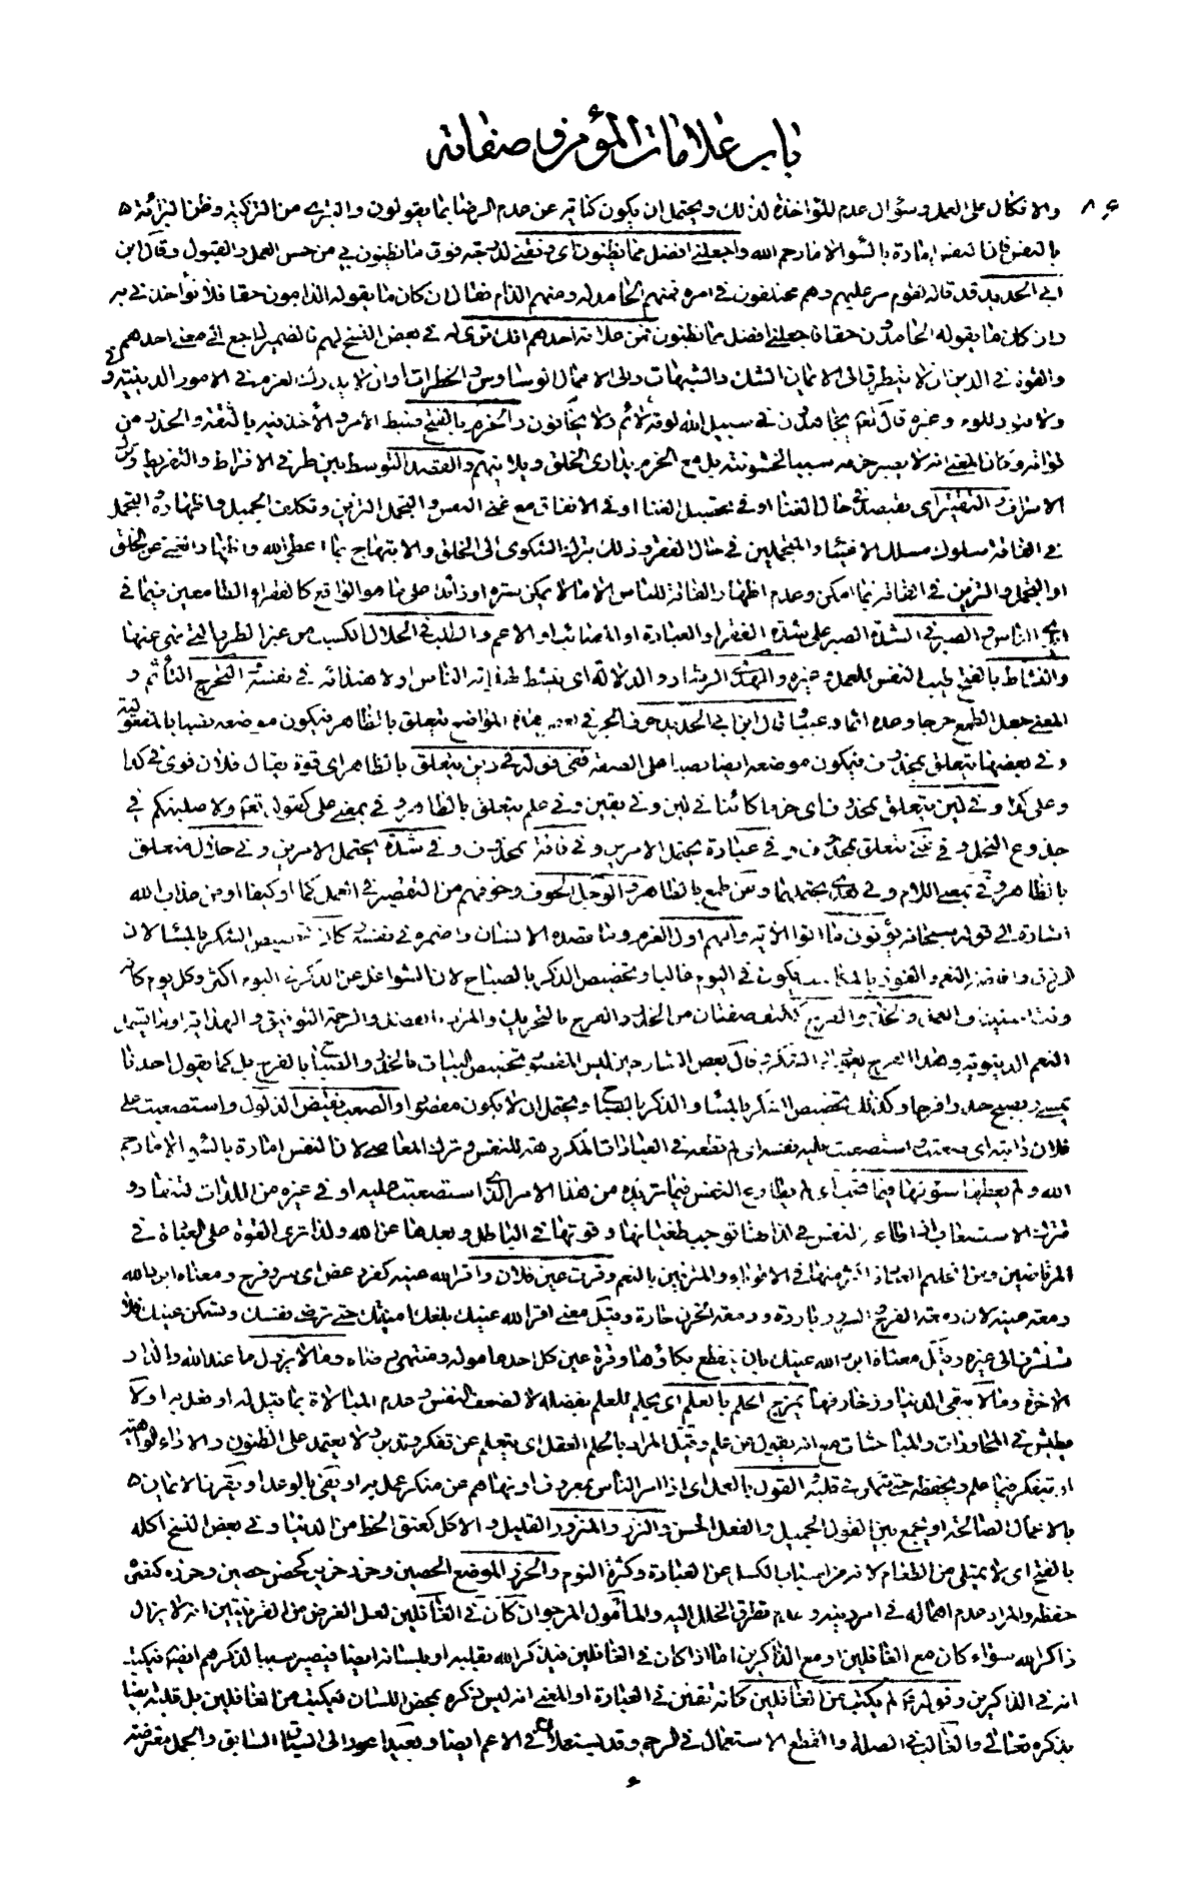 باب علامات المؤمن و صفاته
٨٠٤ والاتكال على العمل وسؤال عدم المؤاخذة لذلك ويحتمل ان يكون كناية عن عدم الرضا بما يقولون والتبرى من التزكية وظن البرائة
بالنفس فان النفس امارة بالسوء الا ما رحم الله واجعلنى افضل مما يظنون اى وفقنى لدرجة فوق ما يظنون بى من حسن العمل والقبول وقال ابن
ابى الحديد قد قاله لقوم مر عليهم وهم مختلفون فى امره فمنهم الحامد له ومنهم الذام فقال ان كان ما يقوله الذامون حقا فلا تؤاخذنى به
وان كان ما يقوله الحامدون حقا فاجعلنى افضل مما يظنون فمن علامة احدهم انك ترى له فى بعض النسخ لهم فالضمير راجع الى معنى احدهم
والقوة فى الدين ان لا يتطرق الى الايمان الشك والشبهات والى الاعمال الوساوس والخطرات او ان لا يدركه العزم فى الامور الدينية
ولا لوم وغيره قال تعالى يجاهدون فى سبيل الله لومة لائم ولا يخافون والحزم بالفتح ضبط الامر والأخذ فيه بالثقة والحذر من
فواته وكان المعنى انه لا يصير حزمه سببا لخشونته بل مع الحزم يدارى الخلق ويلاينهم والقصد التوسط بين طرفى الافراط والتفريط وترك
الاسراف والتقتير اى يقتصد فى حال الغنا او فى تحصيل الغنا او فى الانفاق مع غنى النفس والتجمل التزين وتكلف الجميل واظهاره التجمل
فى الفاقة سلوك مسلك الاغنياء والمتجملين فى حال الفقر وذلك بترك الشكوى الى الخلق والابتهاج بما اعطى الله واظهار الغنى عن الخلق
او التجمل والتزين فى الفاقة بما امكن وعدم اظهار الفاقة للناس الا ما لا يمكن ستره او زائدا على ما هو الواقع كالفقراء الطامعين فيما فى
ايدى الناس والصبر فى الشدة الصبر على شدة الفقر او العبادة او المصائب او الاعم والطلب فى الحلال الكسب من غير الطرق التى نهى عنها
والنشاط بالفتح طيب النفس للعمل وغيره والهدى الرشاد والدلالة اى ينشط لهداية الناس او لاهتدائه فى نفسه والتحرج التأثم و
المعنى جعل الطمع حرجا وعده اثما وعيبا قال ابن ابى الحديد حرف الجر فى بعض هذه المواضع يتعلق بالظاهر فيكون موضعه نصبا بالمفعولية
وفى بعضها يتعلق بمحذوف فيكون موضعه ايضا نصبا على الصفة ففى قوله فى دين يتعلق بالظاهر اى قوة يقال فلان قوى فى كذا
وعلى كذا وفى لين يتعلق بمحذوف اى حزما كائنا فى لين وفى يقين وفى علم يتعلق بالظاهر وفى بمعنى على كقوله تعالى ولاصلبنكم فى
جذوع النخل وفى غنى يتعلق بمحذوف وفى عبادة يحتمل الامرين وفى فاقة بمحذوف وفى شدة يحتمل الامرين وفى حلال متعلق
بالظاهر وفى بمعنى اللام وفى هدى يحتملهما وعن طمع بالظاهر والوجل الخوف وخوفهم من التقصير فى العمل كما او كيفا او من عذاب الله
اشارة الى قوله سبحانه يؤتون ما اتوا الآية والهم اول العزم وما قصده الانسان واضمره فى نفسه كان تخصيص الشكر بالمساء لان
الرزق وافاضة النعم والفوز بالمكاسب يكون فى اليوم غالبا وتخصيص الذكر بالصباح لان الشواغل عن الذكر فى اليوم اكثر وكل يوم كانه
وقت والعمل والحذر والفرح ككتف صفتان من الحذر والفرح بالتحريك والمراد الفضل والرحمة التوفيق والهداية او ما يشمل
النعم الدنيوية وهذا الفرح يعود الى الشكر وقال بعض الشارحين ليس المقصود تخصيص البيات بالحذر والصباح بالفرح بل كما يقول احدنا
يمسى ويصبح حذرا فرحا وكذلك تخصيص الشكر بالمساء والذكر بالصباح ويحتمل ان لا يكون مقصودا والصعب نقيض الذلول واستصعبت على
فلان دابته اى صعبت واستصعبت عليه نفسه اى لم تطعه فى العبادات المكروهة للنفس وترك المعاصى لان النفس امارة بالسوء الا ما رحم
الله ولم يعطها سؤلها فيما تحب اى لم يطاوع النفس فيما تريده من هذا الامر الذى استصعبت عليه او فى غيره من اللذات لتنقاد و
تترك الاستصعاب فان اطاعة النفس فى لذاتها توجب طغيانها وقوتها فى الباطل وبعدها عن الله ولذا ترى القوة على العبادة فى
المرتاضين ومن اعلمهم العبادة اكثر منها فى الاقوياء والمترفين بالنعم وقرت عين فلان واقر الله عينه كفر وعض اى سر وفرح ومعناه ابرد الله
دمعة عينه لان دمعة الفرح والسرور باردة ودمعة الحزن حارة وقيل معنى اقر الله عينك بلغك امنيتك حتى ترضى نفسك وتسكن عينك فلا
تستشرف الى غيره وقيل معناه ابرد الله عينك بان ينقطع بكاؤها وقرة عين كل احد مأموله ومنتهى رضاه وما لا يزول ما عند الله والدار
الآخرة وما لا يبقى الدنيا وزخارفها يمزج الحلم بالعلم اى يحلم للعلم بفضله لا لضعف النفس وعدم المبالاة بما قيل له او فعل به او لا
يطيش فى المحاورات والمباحثات مع انه يقول عن علم وقيل المراد بالحلم العقل اى يتعلم عن تفكر وتدبر ولا يعتمد على الظنون والآراء الواهية
او يتفكر فيما علم ويحفظه حتى يتمكن فى قلبه والقول بالعمل اى اذا امر الناس بمعروف او نهاهم عن منكر عمل به او يفى بالوعد او يقرن الايمان
بالاعمال الصالحة او يجمع بين القول الجميل والفعل الحسن والنزر والمنزور القليل والاكل كعنق الحظ من الدنيا وفى بعض النسخ اكله
بالفتح اى لا يمتلى من الطعام لانه من اسباب الكسل عن العبادة وكثرة النوم والحرز الموضع الحصين وحرز حريز كحصن حصين وحرزه كنصره
حفظه والمراد عدم اهماله فى امر دينه وعدم تطرق الخلل اليه والمأمول المرجو ان كان فى الغافلين لعل الغرض من الفريقين انه لا يزال
ذاكرا لله سواء كان مع الغافلين او مع الذاكرين اما اذا كان فى الغافلين فيذكر الله بقلبه او بلسانه ايضا فيصير سببا لذكرهم ايضا فيكتب
انه فى الذاكرين وقوله لم يكتب من الغافلين كانه تفنن فى العبارة او المعنى انه ليس ذكره بمحض اللسان فيكتب من الغافلين بل قلبه ايضا
بذكره تعالى والغالب فى الصلة والقطع الاستعمال فى الرحم وقد يستعملان فى الاعم ايضا وبعيدا عود الى السياق السابق والجمل معترضة